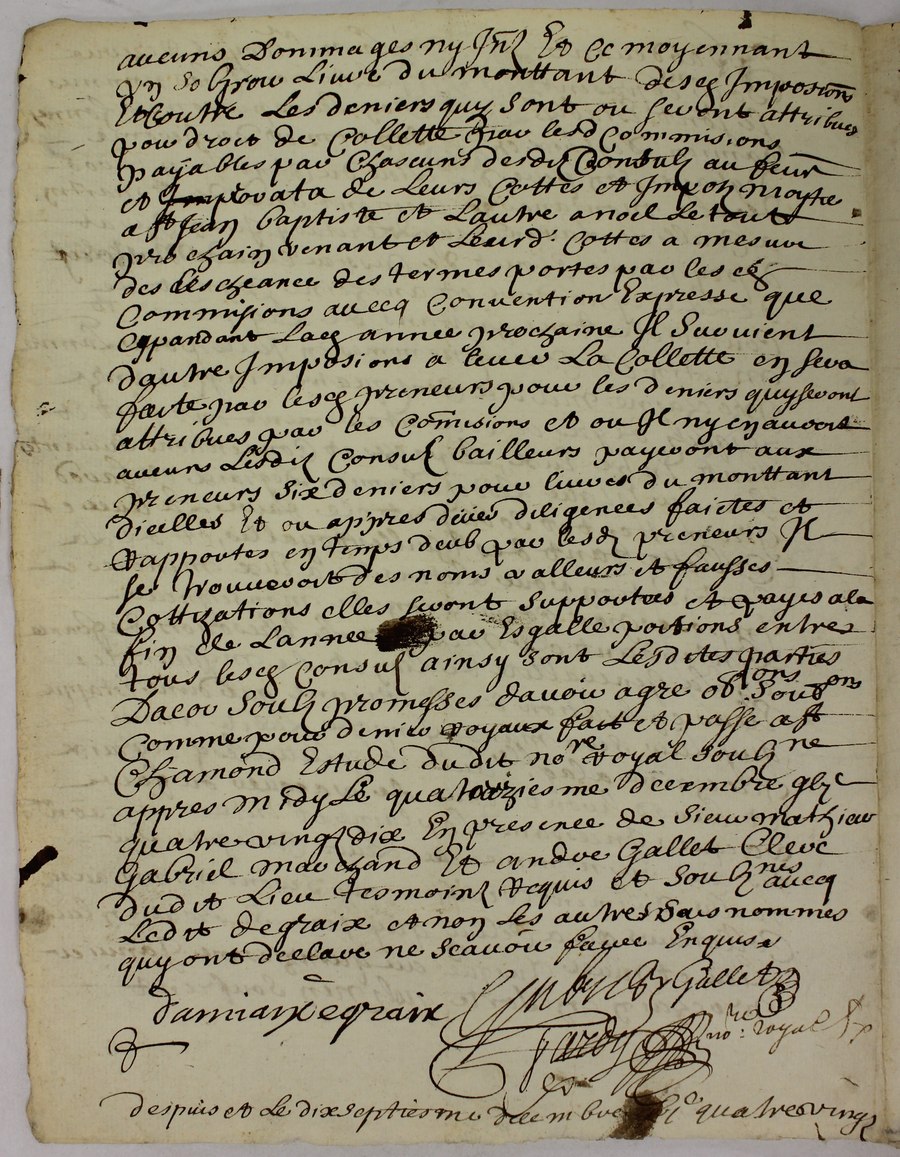 aucuns Dommages ny Jnt Et Ce moyennant
Vn sol pour Liure du monttant desd Imposions
Et Outre Les deniers quy sont ou seront attribues
pour droit de Collette par lesd Commissions
payables par Chascuns desdits Consulz au feur
et Improrata de Leurs Cottes et Impons moytie
a st Jean baptiste et Lautre a noel Le tout
prochain venant et Leursd. Cottes a mesure
des Escheance des termes portes par les
Commissions aueq Convention Expresse que
Cependant Lad annee prochaine Il Suruient
dautre Imposions a leuer La Collette en sera
faite par lesd preneurs pour les deniers quy seront
attribues par les Comissions et ou Il ny en auroit
aucuns Lesdits Consulz bailleurs payeront aux
preneurs six deniers pour liures du monttant
dicelles Et ou appres deues diligences faictes et
Rapportes en temps deub par lesd preneurs Il
se trouueroit des noms valleurs et fausses
Cottizations elles seront supportees et payes ala
fin de Lannee par Esgalle portions entre
tous lesd Consulz ainsy sont Lesdites parties
Dacor Soub promesses dauoir agre obons Soubons
Comme pour deniers Royaux fait et passe a st
Chamond Estude dudit nore Royal soubne
appres midy Le quatorziesme decembre
quatre vingt dix En presence de Sieur mathieu
Gabriel marchand Et andre Gallet Clerc
dudit Lieu tesmoins Requis et Soubnes aueq
Ledit degraix et non les autres susnommes
quy ont declare ne scauoir signer Enquis
damian degraix Gallet
Tardy nore royal
despuis et Le dixseptiesme decembre quatre vingt